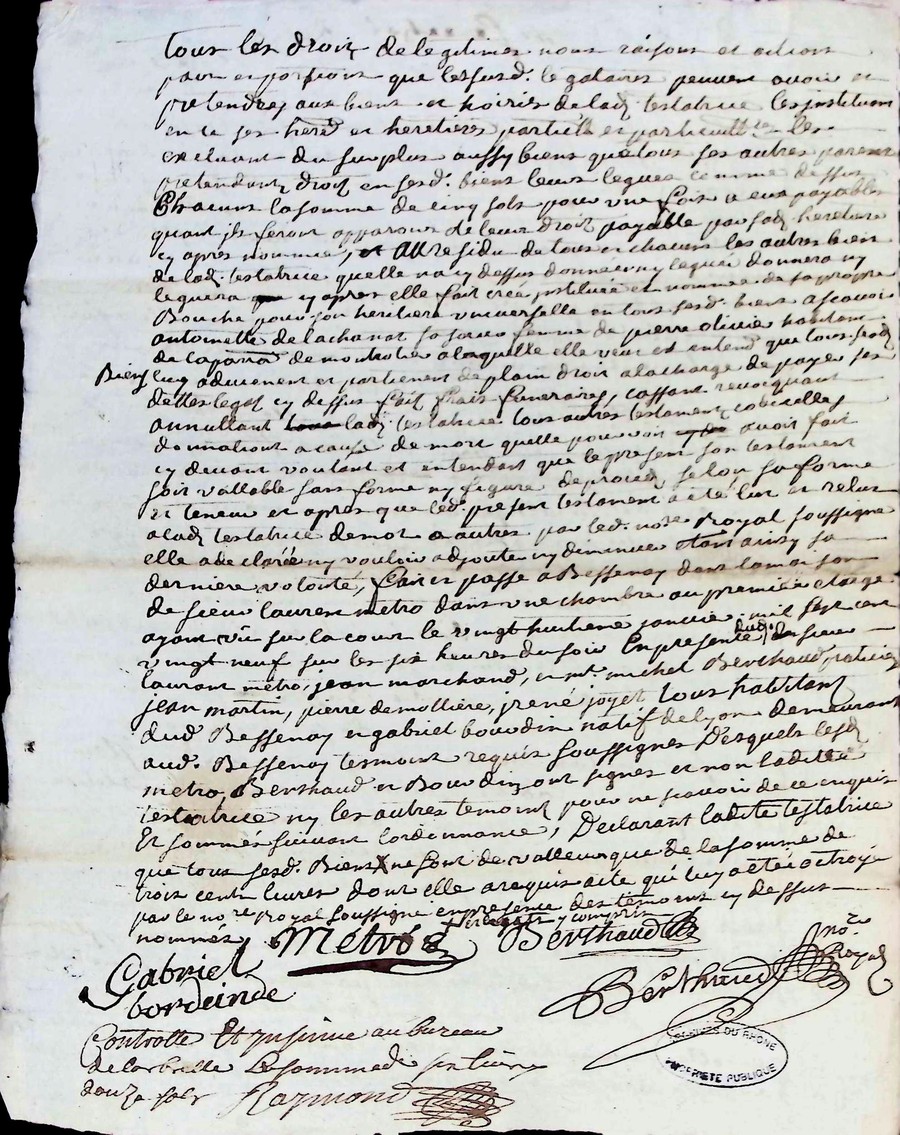 tous les droitz de legitimes noms raisons et actions
part et portions que lesusd. legataires peuvent avoir et
pretendre aux biens et hoiries de lad. testatrice les instituant
en ce ses herd et heretieres particulls et particuliere les
excluant du surplus aussy biens que tous ses autres parens
pretendantz droitz en sesd. biens leurs legues comme dessus
Chacuns la somme de cinq sols pour une fois a eux payables
quant jls feront apparoirs de leur droit payable par sad. heretiere
cy apres nommée, et Au residu de tous et chacuns les autres biens
de lad. testatrice quelle na cy dessus donnée ny legué donnera ny
leguera cy apres elle fait creé jnstitue et nomme de sa propre
Bouche pour son heretiere universelle en tous sesd. biens ascavoir
antoinette delachanat sa soeur femme de pierre olivier habitant
de la parra de montrotier a laquelle elle veut et entend que tous sesd.
Biens luy advienent et partienent de plain droit a la charge de payer ses
dettes legatz cy dessus fait frais funeraires, cassant revocquant
annullant lad. testatrice tous autres testamentz codicelles
donnations a cause de mort quelle pourroit avoir fait
cy devant voulant et entendant que le present son testament
soit vallable sans forme ny figure de procez selon sa forme
Et teneur et apres que led. present testament a eté lut et relut
a lad. testatrice de mot a autres par led. nore Royal soussigne
elle a declarée ny vouloir adjouter ny diminuer Etant ainsy sa
derniere volonté, fait et passe à Bessenay dans la maison
de sieur laurent metro dans une chambre au premier etage
ayant vüe sur la cour le vingt huitieme janvier mil sept cent
vingt neuf sur les six heures du soir En presence dud. sieur
laurant metro, jean marchand, et mr. michel Berthaud, praticien
jean martin, pierre demolliere, jrené joyet tous habitant
dud. Bessenay et gabriel bourdin natif de Lyon demeurant
aud. Bessenay temoint requis soussignes Desquels lesd.
metro, Berthaud et Bourdin ont signes et non ladite
testatrice ny les autres temoint pour ne scavoir de ce enquis
Et sommés suivant lordonnance, Declarant ladite testatrice
que tous sesd. Biens ne sont de valleur que de la somme de
trois cent livres dont elle a requis acte qui luy a eté octroyé
par le nore royal soussigné en presence des temoint cy dessus
nommés y compris
Métró Berthaud
Gabriel
bordeinde
Berthaud nore Royal
Controlle Et jnsinue au bureau
de larbrelle La somme de six livres
douze sols Raymond
ARCHIVES DU RHONE
PROPRIETE PUBLIQUE